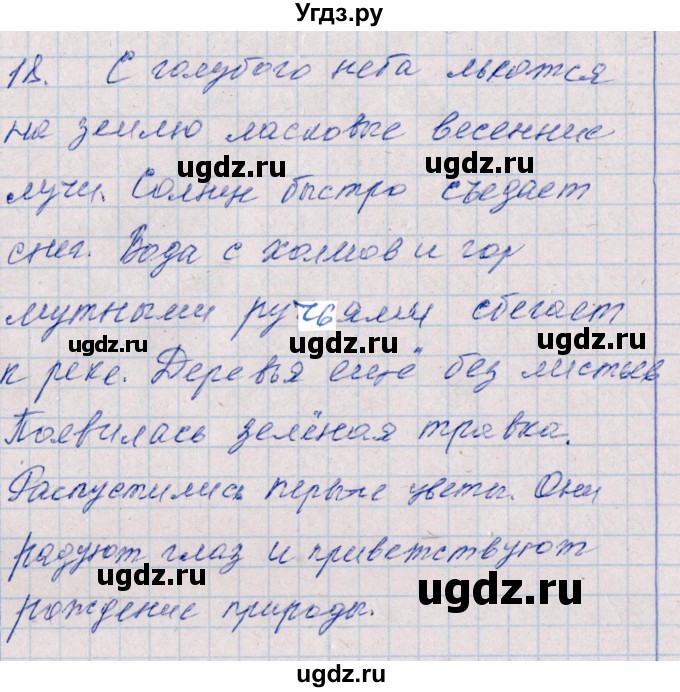 Угдз.ру
18. С голубого неба лькотся
на землю ласковые весенние
ugdz.ru ugdz.ru
лучи. Солнце быстро съедает
снег. Вода с холмов и гор
мутными ручьями сбегает
ugdz.ru ugdz.ru
к реке. Деревья ещё без листьев
Появилась зелёная травка.
ugdz.ru ugdz.ru
Распустились первые цветы. Они
радуют глаз и приветствуют
ugdz.ru ugdz.ru
рождение природы.
ugdz.ru